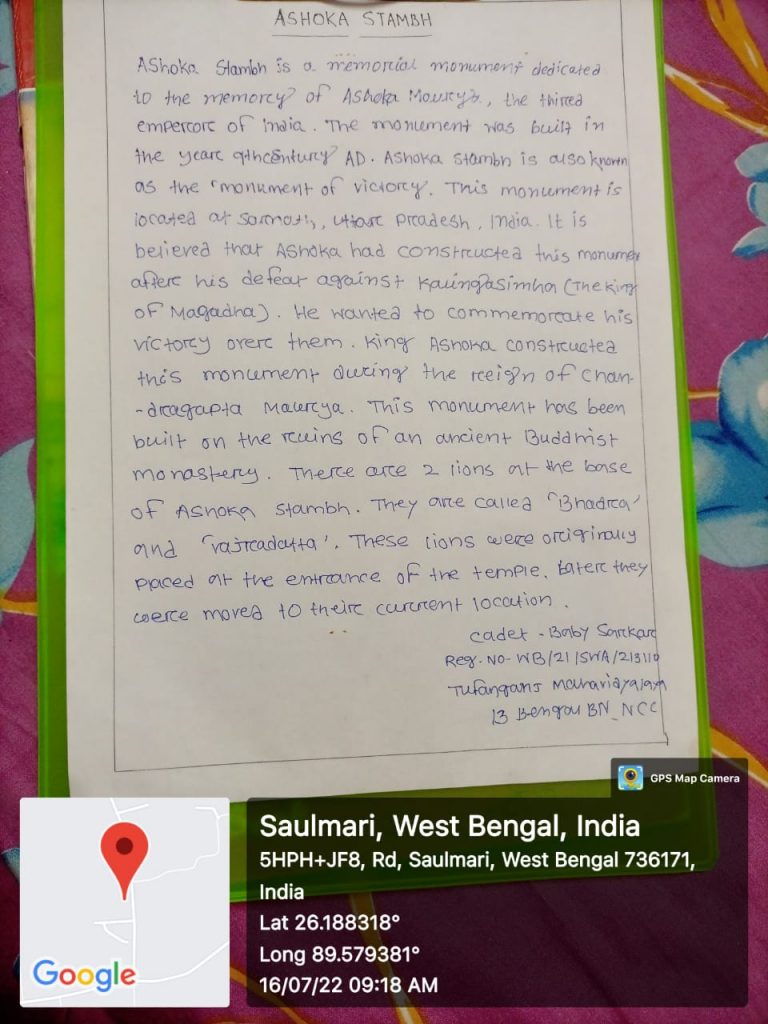 ASHOKA STAMBH
Ashoka Stambh is a memorcial monument dedicated
to the memorcy of Ashoka Maurcya, the thired
emperorc of india. The monument was built in
the yearc 9thcentury AD. Ashoka stambh is also known
as the "monument of victorcy. This monument is
located at Sarcnath, Uttarc Prcadesh, India. It is
believed that Ashoka had constrcucted this monumen
afterc his defeat against Kalingasimha (The king
of Magadha). He wanted to commemorcate his
victorcy overc them. King Ashoka constrcucted
this monument durcing the rceign of Chan-
-drcagapta Maurcya. This monument has been
built on the rcuins of an ancient Buddhist
monastercy. Therce arce 2 lions at the base
of Ashoka stambh. They arce called 'Bhadrca'
and 'vajrcadatta'. These lions werce orciginally
placed at the entrcance of the temple. Laterc they
werce moved to theirc currcent location.
Cadet - Baby Sarckarc
Reg. No- WB/21/SWA/213110
Tufanganj Mahavidyalaya
13 Bengal BN_NCC
GPS Map Camera
Saulmari, West Bengal, India
5HPH+JF8, Rd, Saulmari, West Bengal 736171,
India
Lat 26.188318°
Long 89.579381°
16/07/22 09:18 AM
Google